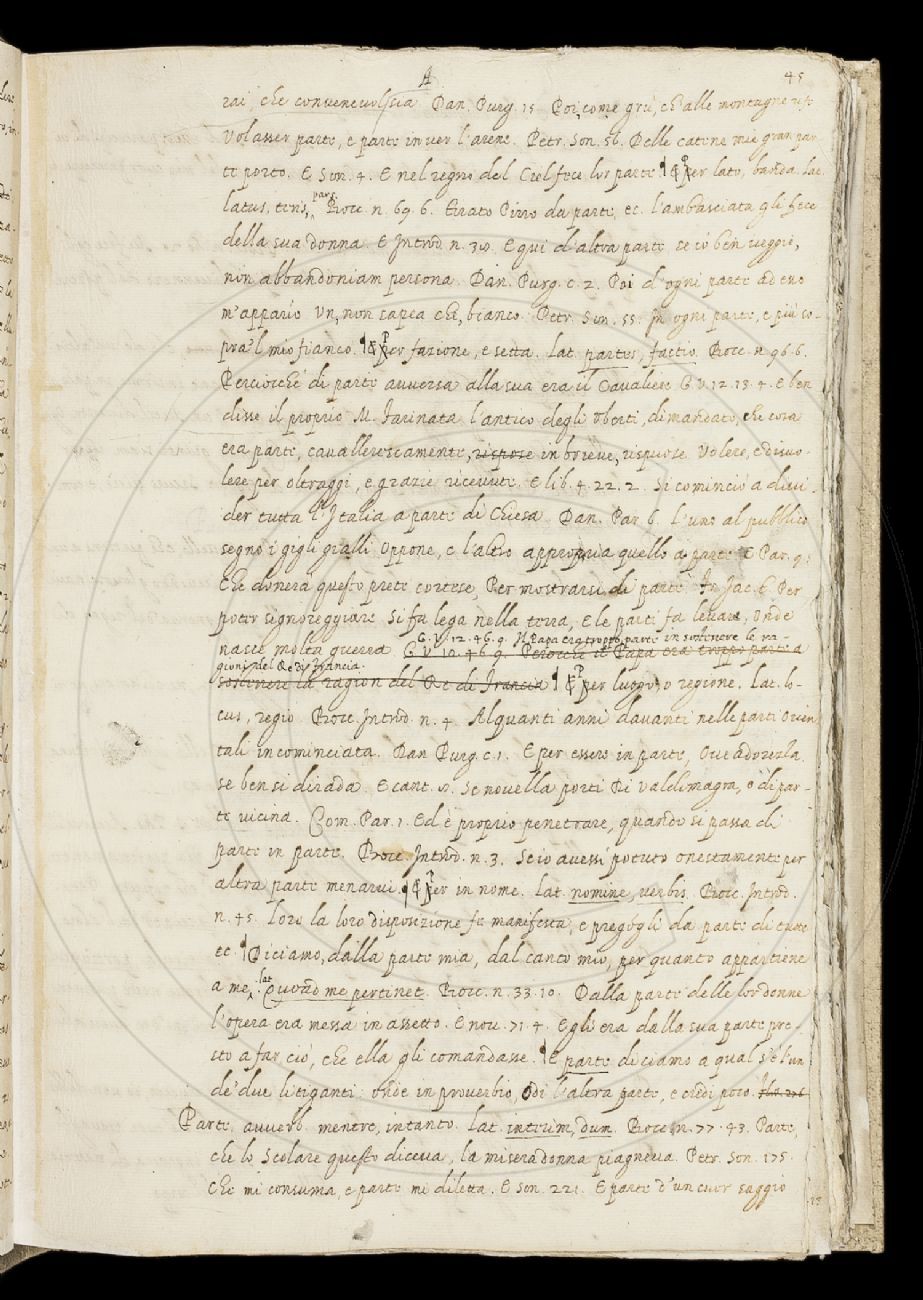 A
45
rai, che convenevol sia Dan. Purg. 15 Poi, come grù, ch'alle montagne rife
Volasser parte, e parte inver l'arene. Petr. Son. 56. Delle catene mie gran par
te porto. E Son. 4. E nel regno del Ciel fece lor parte ¶ E Per lato, banda. Lat.
latus, pars. Bocc. n. 69. 6. Tirato Pirro da parte, ec. l'ambasciata gli fece
della sua donna. E Introd. n. 38. E qui d'altra parte se io ben veggio,
non abbandoniam persona. Dan. Purg. c. 2. Poi d'ogni parte ad esso
m'appario Un, non sapea che, bianco. Petr. Son. 55. In ogni parte, e più so-
pra 'l mio fianco. ¶ E Per fazione, e setta. Lat. partes, factio. Bocc. n. 96. 6.
Perciocchè di parte avversa alla sua era il Cavaliere G. V. 12. 13. 4. E ben
disse il proprio M. Farinata l'antico degli Uberti, dimandato, che cosa
era parte, cavallerescamente, rispose in brieve, rispuose. Volere, e disvo-
lere per oltraggi, e grazie ricevute. E lib. 4. 22. 2. Si cominciò a divi-
der tutta l'Italia a parte di Chiesa. Dan. Par. 6. L'uno al pubblico
segno i gigli gialli Oppone, e l'altro appropria quello a parte E Par. 9.
Che donerà questo prete cortese, Per mostrarsi di parte. Fr. Jac. T. Per
poter signoreggiare Si fa lega nella terra, E le parti fa levare, Onde
nasce molta guerra. G. V. 12. 46. 9. Il Papa era troppo parte in sostenere le ra-
gioni del Re di Francia.
G. V. 12. 46. 9. Perocchè il Papa era troppo parte a
sostenere la ragion del Re di Francia ¶ E Per luogo, o regione. Lat. lo-
cus, regio. Bocc. Introd. n. 4. Alquanti anni davanti nelle parti Orien
tali incominciata. Dan Purg. c. 1. E per essere in parte, Ove adorezza
se ben si dirada. E cant. 8. Se novella parti Di Valdimagra, o di par-
te vicina. Com. Par. 1. Ed è proprio penetrare, quando si passa di
parte in parte. Bocc. Introd. n. 3. Se io avessi potuto onestamente per
altra parte menarvi. ¶ E Per in nome. Lat. nomine, verbis. Bocc. Introd.
n. 45. Loro la loro disposizione fe manifesta, e pregògli da parte di tutte
ec. ¶ Diciamo, dalla parte mia, dal canto mio, per quanto appartiene
a me, lat. Quoad me pertinet. Bocc. n. 33. 10. Dalla parte delle lor donne
l'opera era messa in assetto. E nov. 71. 4. Egli era dalla sua parte pre-
sto a far ciò, che ella gli comandasse. ¶ E parte diciamo a qual s'è l'un
de' due litiganti: onde in proverbio, Odi l'altra parte, e credi poco.
Parte. avverb. mentre, intanto. Lat. interim, dum. Bocc. n. 77. 43. Parte,
che lo Scolare questo diceva, la misera donna piagneva. Petr. Son. 175.
Che mi consuma, e parte mi diletta. E Son. 221. E parte d'un cuor saggio